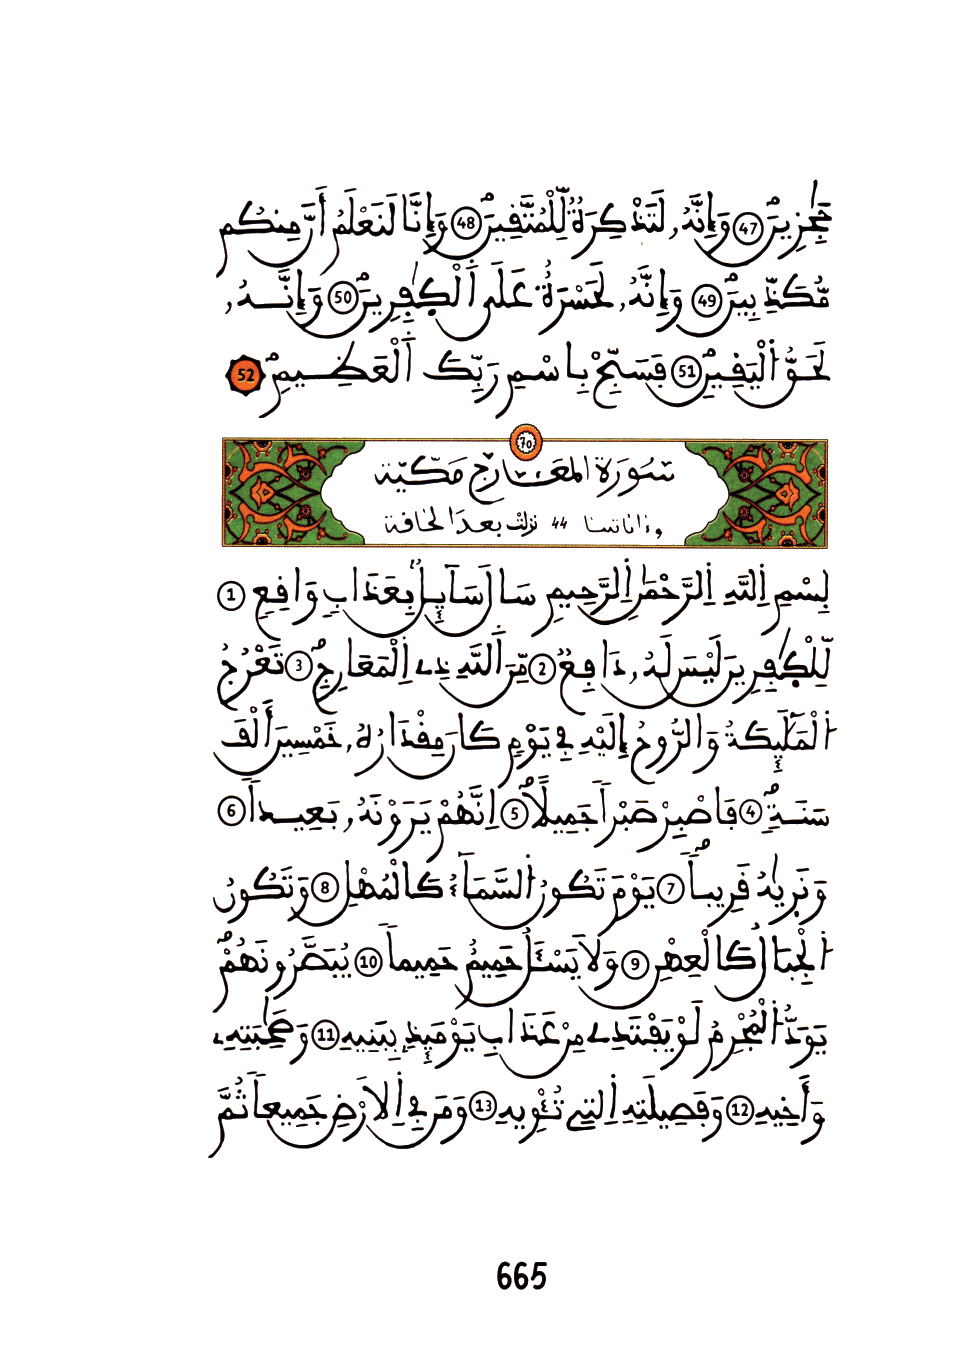 حَٰجِزِينَ 47 وَإِنَّهُۥ لَتَذْكِرَةٌ لِّلْمُتَّقِينَ 48 وَإِنَّا لَنَعْلَمُ أَنَّ مِنكُم
مُّكَذِّبِينَ 49 وَإِنَّهُۥ لَحَسْرَةٌ عَلَى اَ۬لْكٰ۪فِرِينَ 50 وَإِنَّهُۥ
لَحَقُّ اُ۬لْيَقِينِ 51 فَسَبِّحْ بِاسْمِ رَبِّكَ اَ۬لْعَظِيمِ 52
70
سُورَةُ المَعَارِجِ مَكِّيَّة
وءاياتها 44 نزلت بعد الحاقة
بِسْمِ اِ۬للَّهِ اِ۬لرَّحْمَٰنِ اِ۬لرَّحِيمِ سَالَ سَآئِلٌ بِعَذَابٍ وَاقِعٍ 1
لِّلْكٰ۪فِرِينَ لَيْسَ لَهُۥ دَافِعٌ 2 مِّنَ اَ۬للَّهِ ذِے اِ۬لْمَعَارِجِ 3 تَعْرُجُ
اُ۬لْمَلَٰٓئِكَةُ وَالرُّوحُ إِلَيْهِ فِي يَوْمٍ كَانَ مِقْدَارُهُۥ خَمْسِينَ أَلْفَ
سَنَةٍ 4 فَاصْبِرْ صَبْراً جَمِيلاً 5 اِنَّهُمْ يَرَوْنَهُۥ بَعِيداً 6
وَنَرٜيٰهُ قَرِيباً 7 يَوْمَ تَكُونُ اُ۬لسَّمَآءُ كَالْمُهْلِ 8 وَتَكُونُ
اُ۬لْجِبَالُ كَالْعِهْنِ 9 وَلَا يَسْـَٔلُ حَمِيمٌ حَمِيماً 10 يُبَصَّرُونَهُمْ
يَوَدُّ اُ۬لْمُجْرِمُ لَوْ يَفْتَدِے مِنْ عَذَابِ يَوْمَئِذِۢ بِبَنِيهِ 11 وَصَٰحِبَتِهِۦ
وَأَخِيهِ 12 وَفَصِيلَتِهِ اِ۬لتِي تُـْٔوِيهِ 13 وَمَن فِي اِ۬لَارْضِ جَمِيعاً ثُمَّ
665